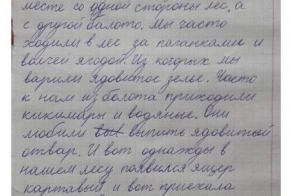 месте со одной стороны лес, а
с другой болото. Мы часто
ходили в лес за поганками и
волчей ягодой. Из когдрых мы
варили ядовитое зелье. Часто
к нам из болота приходили
кикимары и водяные. Они
любили выпите ядовитый
отвар. И вот однажды в
нашем лесу появился ящер
картавый, и вот приехала